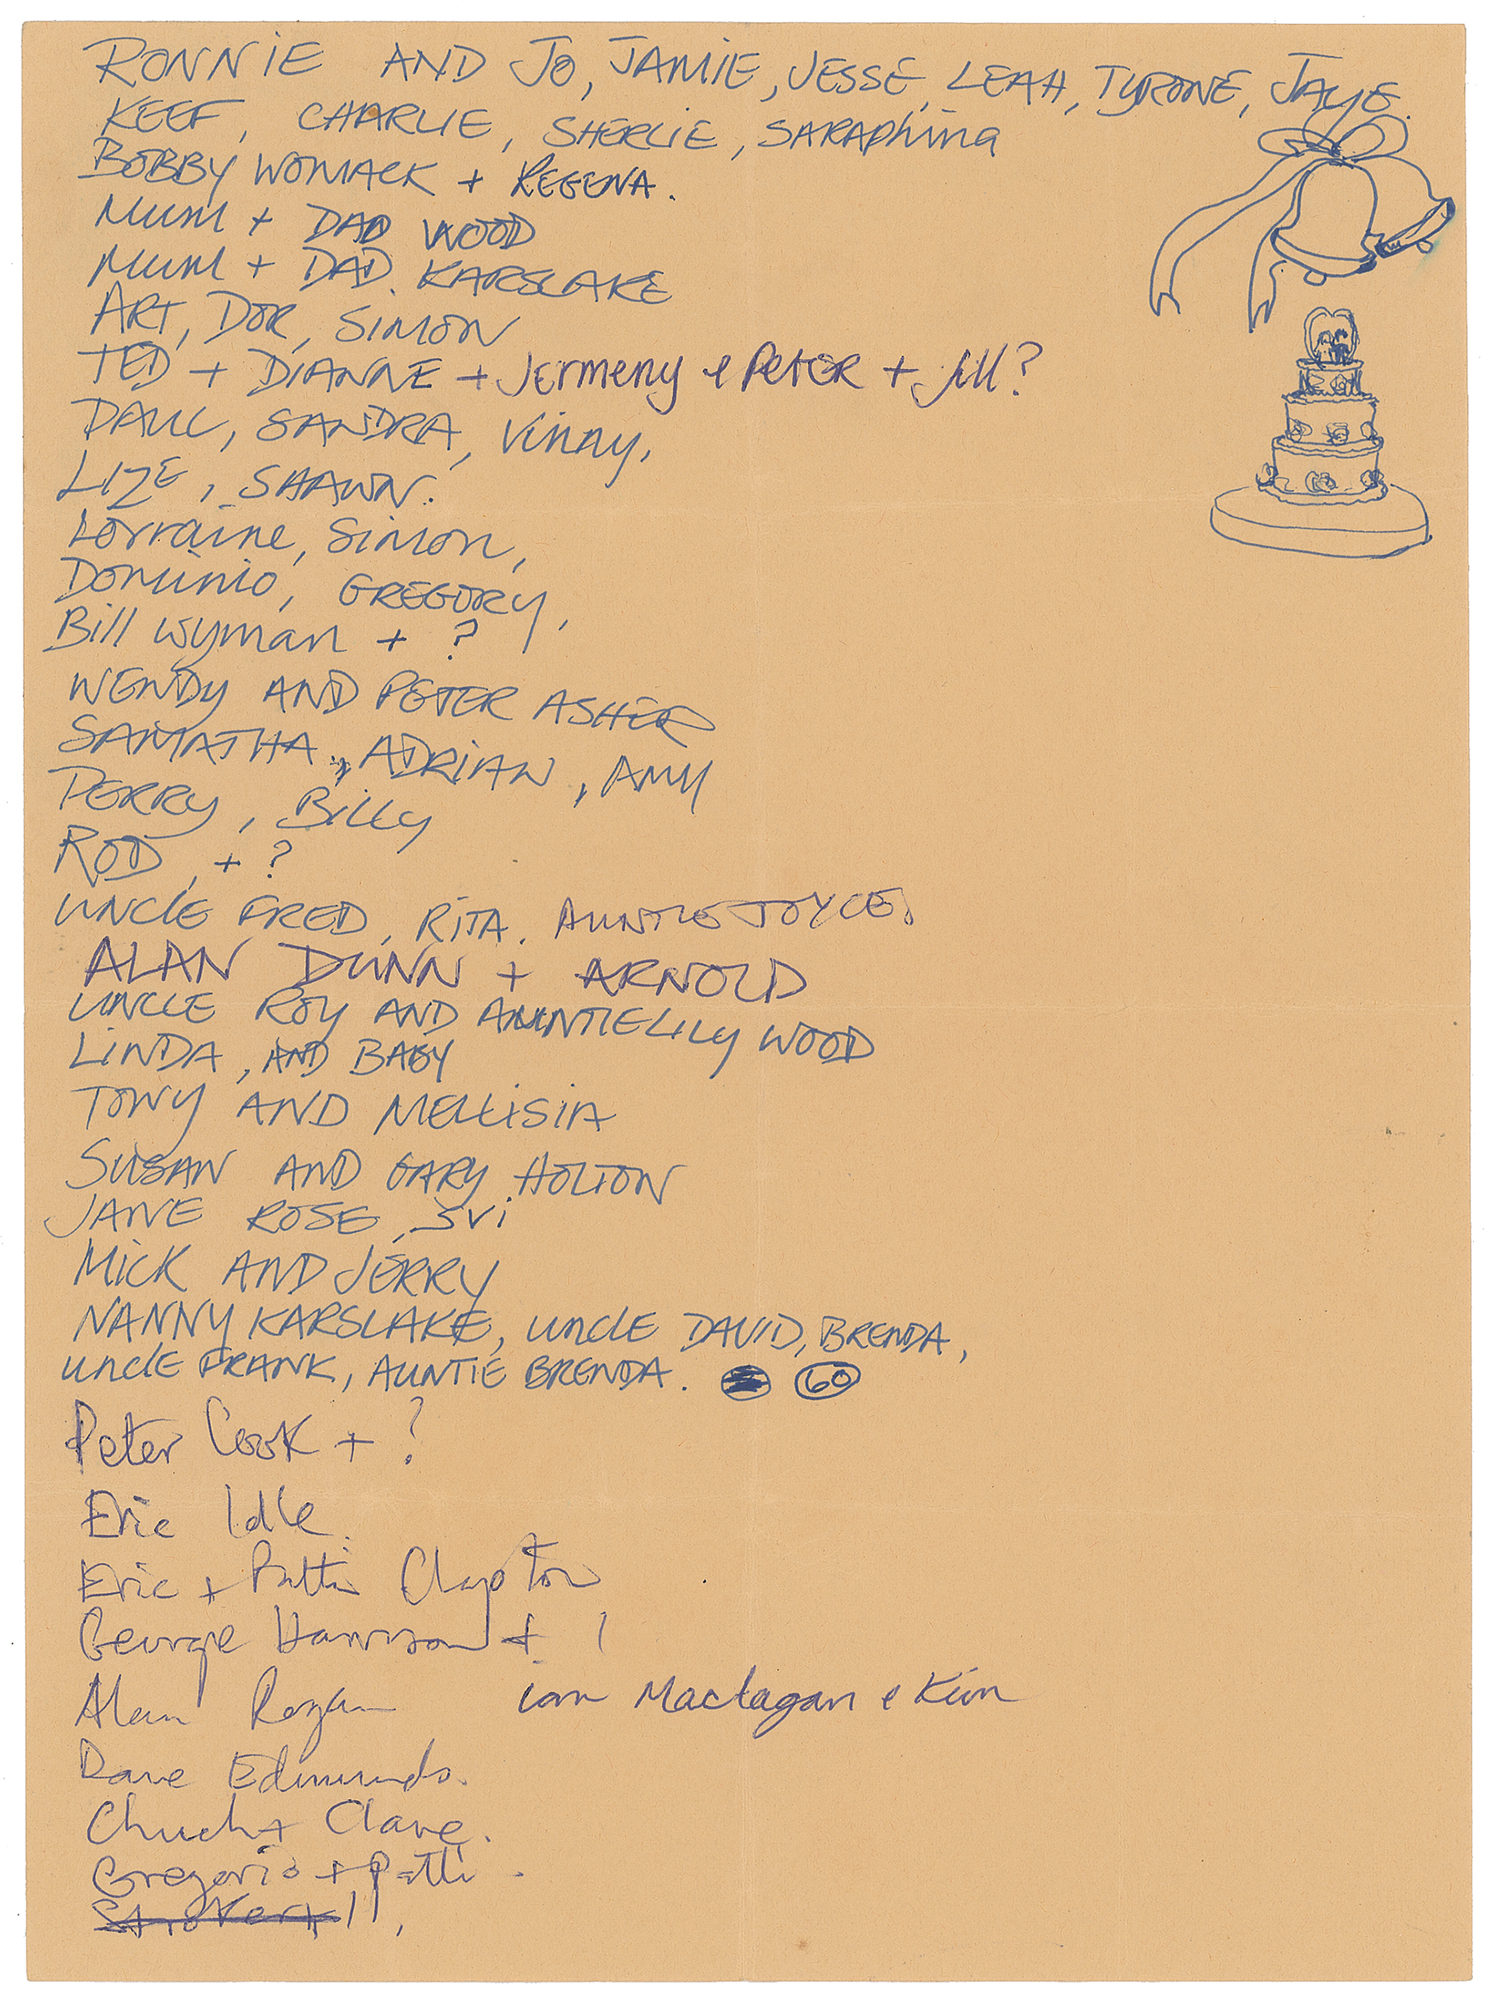 RONNIE AND JO, JAMIE, JESSE, LEAH, TYRONE, JAYE.
KEEF, CHARLIE, SHERLIE, SARAPhina
BOBBY WOMACK + REGENA.
MUM + DAD WOOD
MUM + DAD KARSLAKE
ART, DOR, SIMON
TED + DIANNE + Jermeny & PETER + Jill?
PAUL, SANDRA, Vinny,
LIZE, SHAWN.
Lorraine, Simon,
Dominio, GREGORY,
Bill Wyman + ?
WENDY AND PETER ASHER
SAMATHA, ADRIAN, AMY
PERRY, BILLY
ROD, + ?
UNCLE FRED, RITA. AUNTIE JOYCE.
ALAN DUNN + ARNOLD
UNCLE ROY AND AUNTIE LILY WOOD
LINDA, AND BABY
TONY AND MELLISIA
SUSAN AND GARY HOLTON
JANE ROSE, SVI
MICK AND JERRY
NANNY KARSLAKE, UNCLE DAVID, BRENDA,
UNCLE FRANK, AUNTIE BRENDA. 60
Peter Cook + ?
Eric Idle
Eric + Patti Clapton
George Harrison +
Alan Rogan Ian Maclagan & Kim
Dave Edmunds.
Chuch + Clare.
Gregorio + Patti.